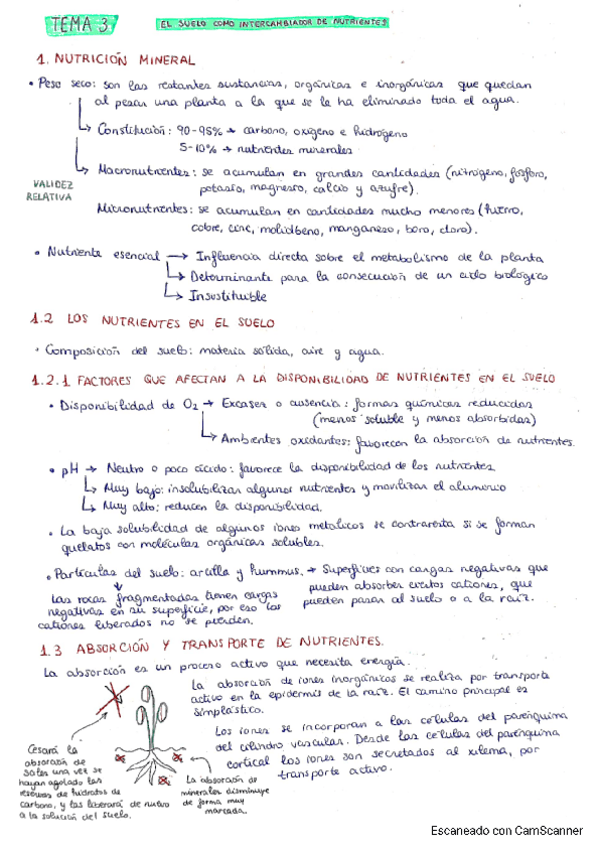 TEMA 3. EL SUELO COMO INTERCAMBIADOR DE NUTRIENTES
1. NUTRICIÓN MINERAL
• Peso seco: son las restantes sustancias, orgánicas e inorgánicas que quedan
al pesar una planta a la que se le ha eliminado toda el agua.
↳ Constitución: 90-95% → carbono, oxígeno e hidrógeno
5-10% → nutrientes minerales
↳ Macronutrientes: se acumulan en grandes cantidades (nitrógeno, fósforo,
potasio, magnesio, calcio y azufre).
VALIDEZ
RELATIVA
Micronutrientes: se acumulan en cantidades mucho menores (hierro,
cobre, cinc, molidbeno, manganeso, boro, cloro).
• Nutriente esencial → Influencia directa sobre el metabolismo de la planta
↳ Determinante para la consecución de un ciclo biológico
↳ Insustituible
1.2 LOS NUTRIENTES EN EL SUELO
• Composición del suelo: materia sólida, aire y agua.
1.2.1 FACTORES QUE AFECTAN A LA DISPONIBILIDAD DE NUTRIENTES EN EL SUELO
• Disponibilidad de O₂ → Escasez o ausencia: formas químicas reducidas
(menos soluble y menos absorbidas)
↳ Ambientes oxidantes: favorecen la absorción de nutrientes.
• pH → Neutro o poco ácido: favorece la disponibilidad de los nutrientes
↳ Muy bajo: insolubilizan algunos nutrientes y movilizan el aluminio
↳ Muy alto: reducen la disponibilidad.
• La baja solubilidad de algunos iones metálicos se contrarresta si se forman
quelatos con moléculas orgánicas solubles.
• Partículas del suelo: arcilla y hummus. → Superficies con cargas negativas que
pueden absorber ciertos cationes, que
pueden pasar al suelo o a la raíz.
Las rocas fragmentadas tienen cargas
negativas en su superficie, por eso los
cationes liberados no se pierden.
1.3 ABSORCIÓN Y TRANSPORTE DE NUTRIENTES.
La absorción es un proceso activo que necesita energía.
La absorción de iones inorgánicos se realiza por transporte
activo en la epidermis de la raíz. El camino principal es
simplástico.
Los iones se incorporan a las células del parénquima
del cilindro vascular. Desde las células del parénquima
cortical los iones son secretados al xilema, por
transporte activo.
Cesará la
absorción de
sales una vez se
hayan agotado las
reservas de hidratos de
carbono, y las liberará de nuevo
a la solución del suelo.
La absorción de
minerales disminuye
de forma muy
marcada.
Escaneado con CamScanner